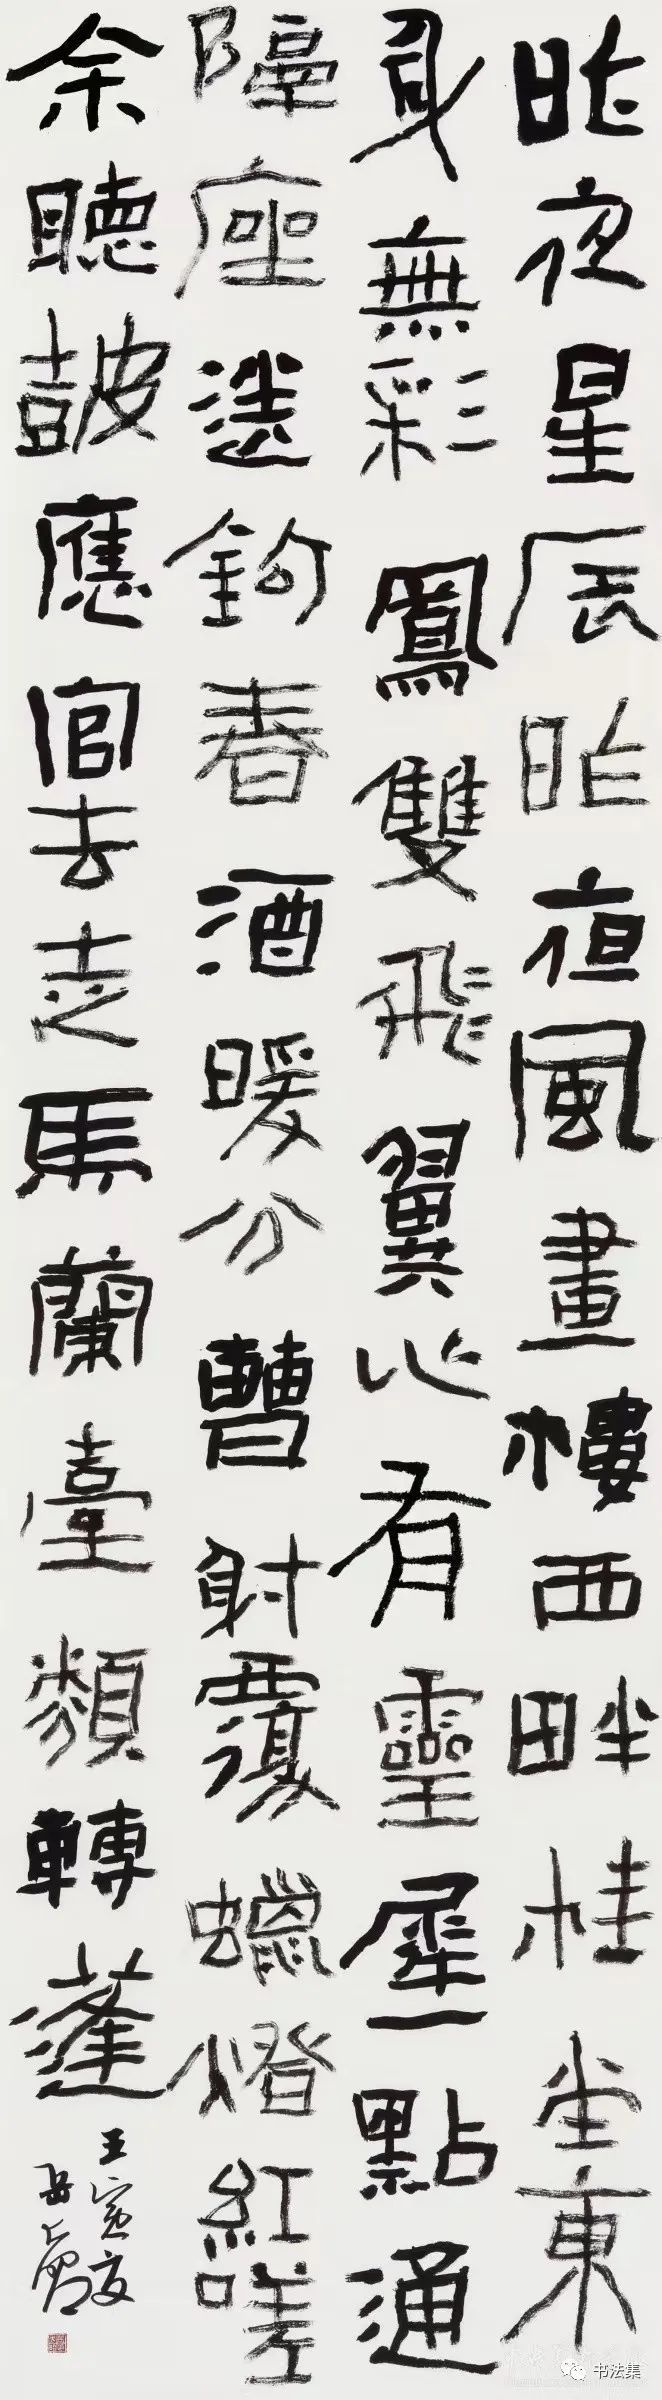 昨夜星辰昨夜風畫樓西畔桂堂東
身無彩鳳雙飛翼心有靈犀一點通
隔座送鉤春酒暖分曹射覆蠟燈紅嗟
余聽鼓應官去走馬蘭臺類轉蓬
壬寅夏
书法集